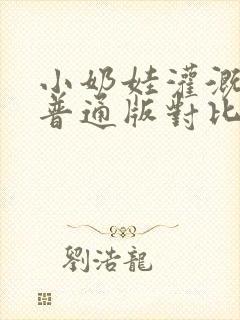 小奶娃灌溉
普通版對比
劉浩龍